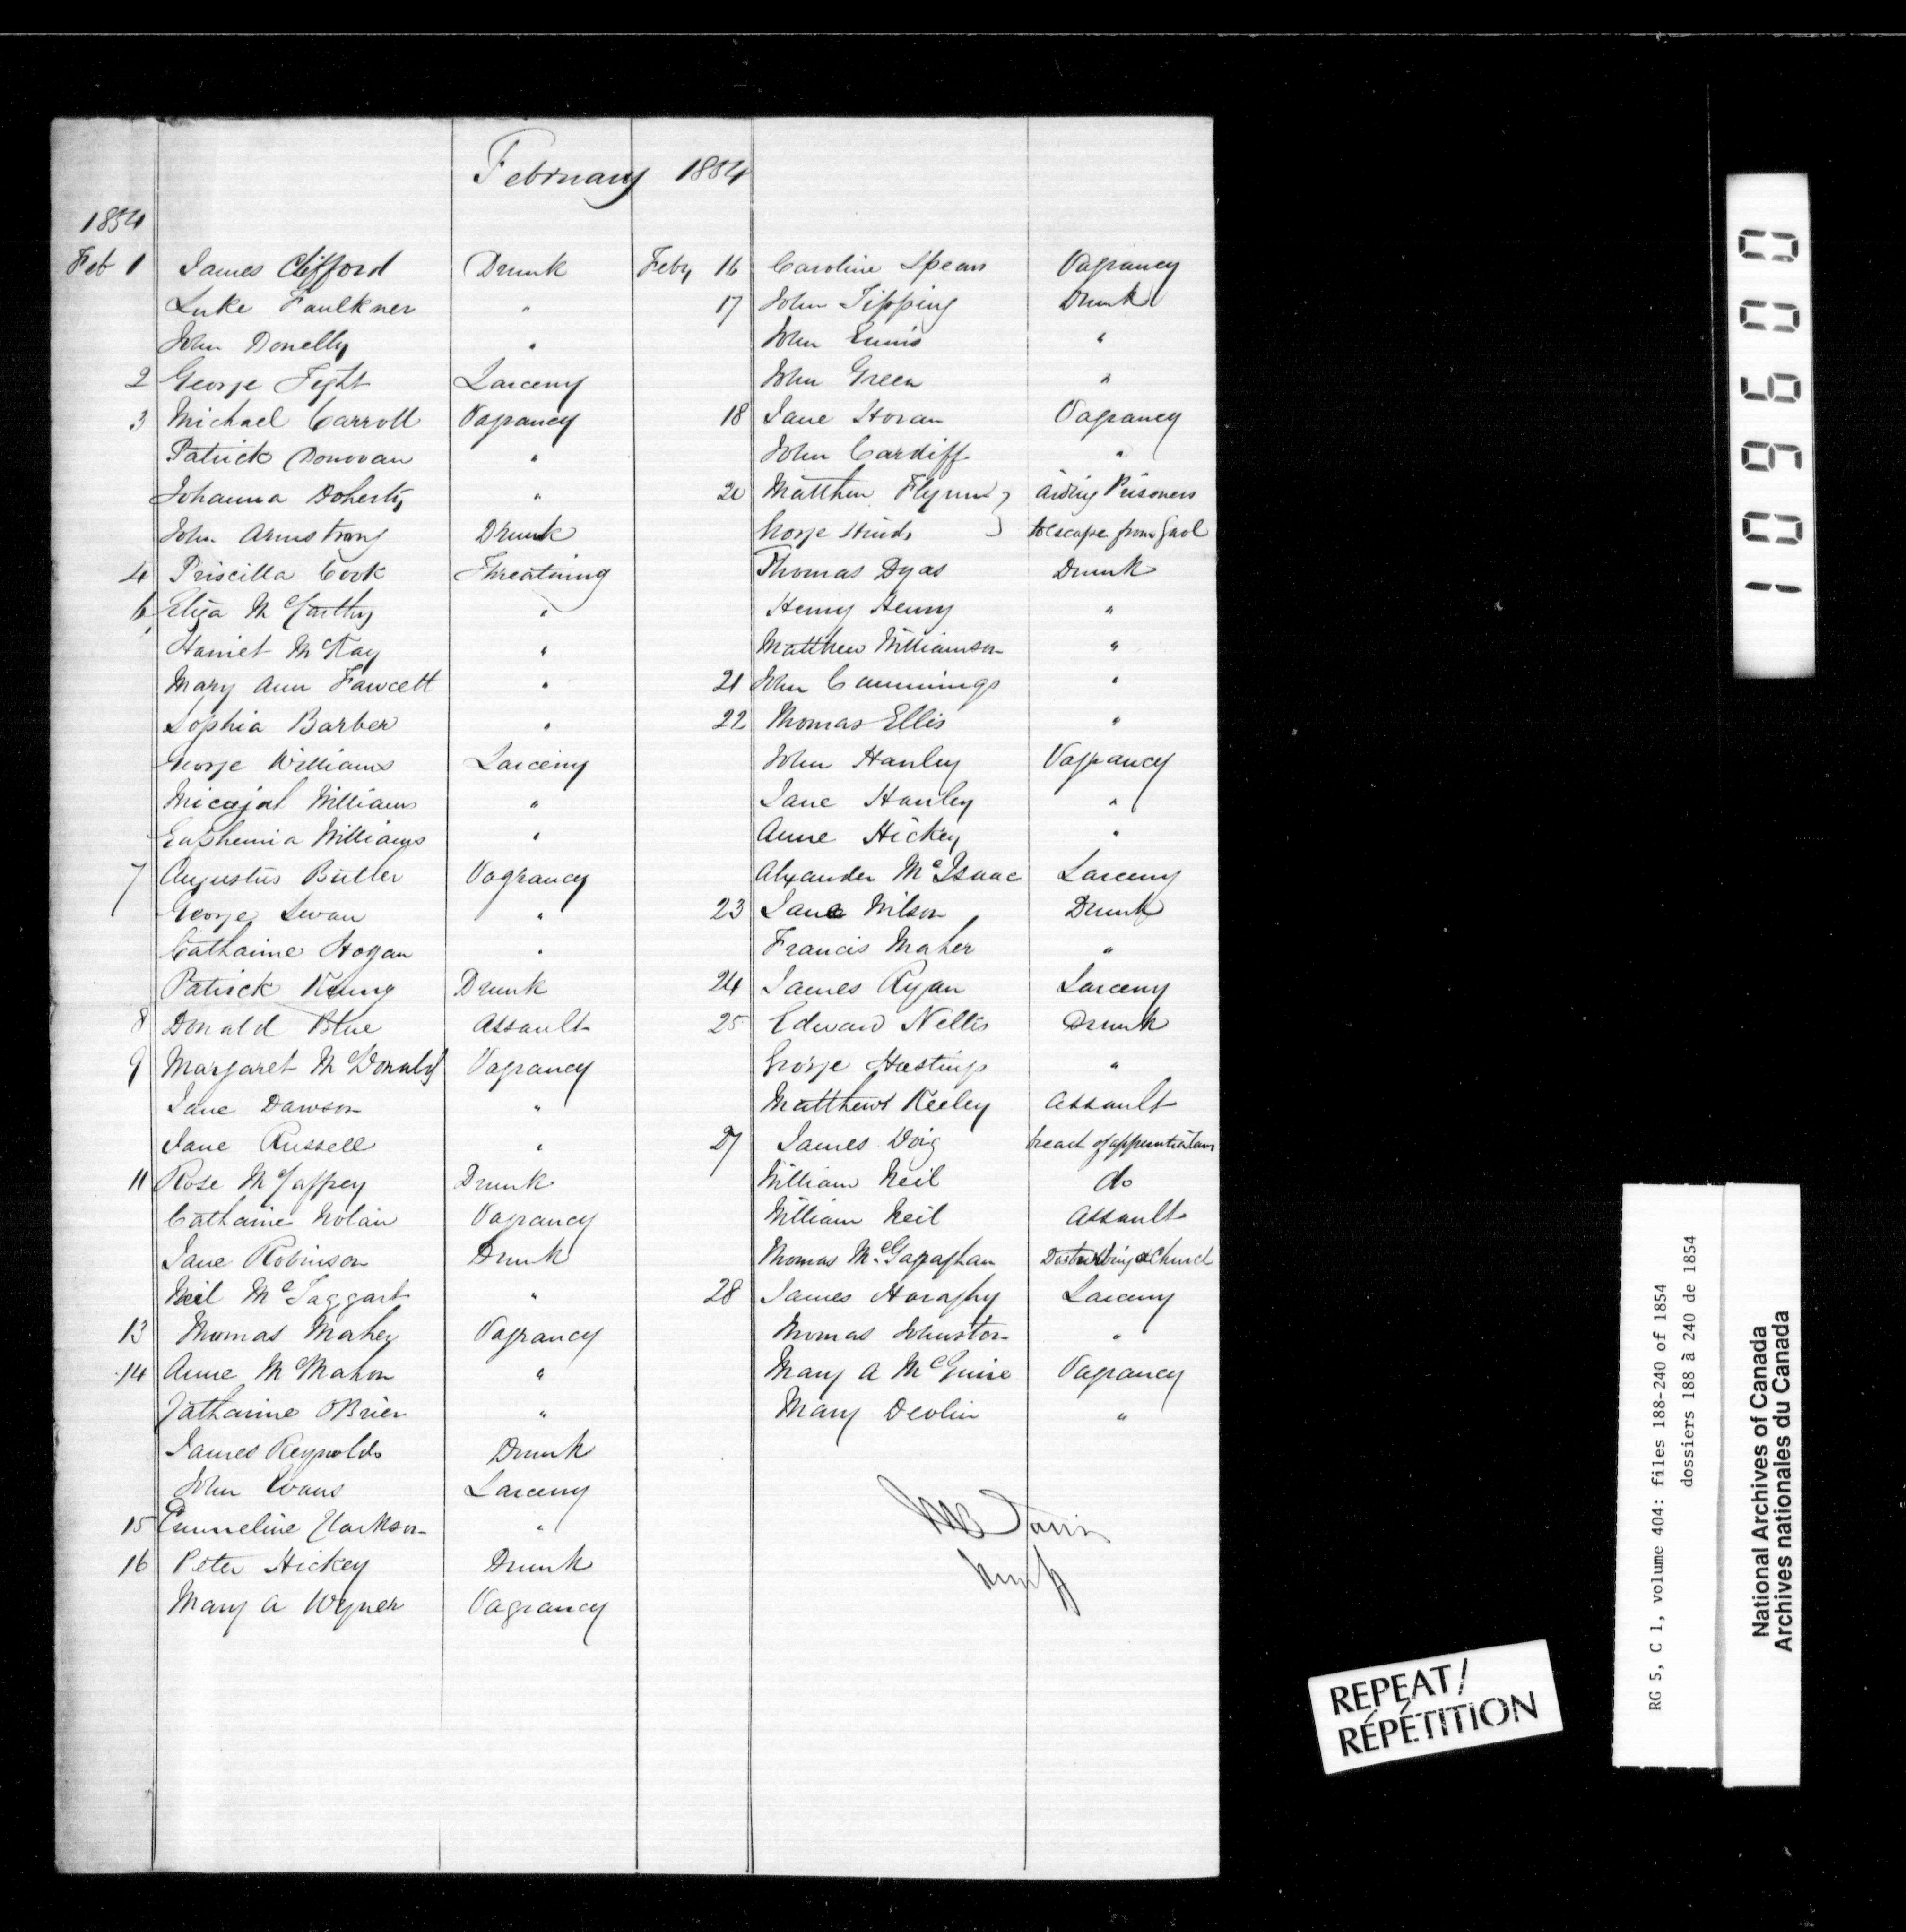 February 1854
1854
Feb 1 James Clifford Drunk
Luke Faulkner "
John Donelly "
2 George Fight Larceny
3 Michael Carroll Vagrancy
Patrick Donovan "
Johanna Doherty "
John Armstrong Drunk
4 Priscilla Cook Threatning
6 Eliza McCarthy "
Harriet McKay "
Mary Ann Fawcett "
Sophia Barber "
George Williams Larceny
Micajah Williams "
Euphemia Williams "
7 Augustus Butler Vagrancy
George Swan "
Catharine Hogan "
Patrick Drunk
8 Donald Blue Assault
9 Margaret McDonald Vagrancy
Jane Dawson "
Jane Russell "
11 Rose McCaffrey Drunk
Catharine Nolan Vagrancy
Jane Robinson Drunk
Neil McTaggart "
13 Thomas Maher Vagrancy
14 Anne McMahon "
Catharine OBrien "
James Reynolds Drunk
John Evans Larceny
15 Emmeline Clarkson "
16 Peter Hickey Drunk
Mary A Vagrancy
Feby 16 Caroline Spears Vagrancy
17 John Tipping Drunk
John Ennis "
John Green "
18 Jane Horan Vagrancy
John Cardiff "
20 Matthew Flynn } aiding Prisoners
George Hinds } to escape from Gaol
Thomas Dyas Drunk
Henry Henry "
Matthew Williamson "
21 John Cummings "
22 Thomas Ellis "
John Hanley Vagrancy
Jane Hanley "
Anne Hickey "
Alexander McIsaac Larceny
23 Jane Wilson Drunk
Francis Maher "
24 James Ryan Larceny
25 Edward Nellis Drunk
George Hastings "
Matthew Keeley Assault
27 James Doig breach of
William Neil do
William Neil Assault
Thomas McGaraghan Disturbing a Church
28 James Haraghy Larceny
Thomas Johnston "
Mary A McGuire Vagrancy
Mary Devlin "
109600
RG 5, C 1, volume 404: files 188-240 of 1854
dossiers 188 à 240 de 1854
National Archives of Canada
Archives nationales du Canada
REPEAT/
RÉPÉTITION